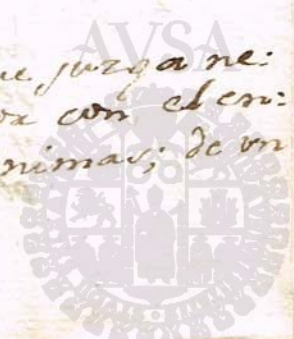 AVSA
ue juzga ne:
or con el en:
nimas; de vn